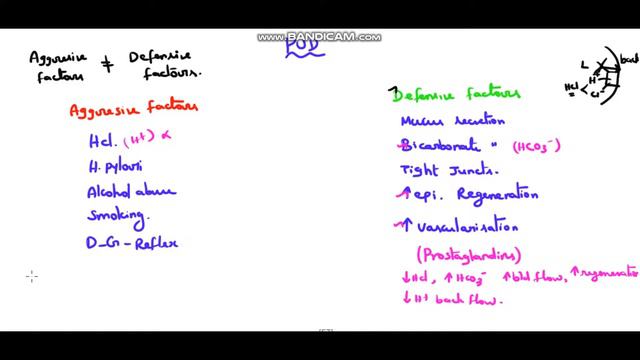 WWW.BANDICAM.COM
POD
Aggresive factors ≠ Defensive factors.
Aggresive factors
Hcl. (H⁺) ∝
H. pylori
Alcohol abuse
Smoking.
D-G-Reflex
↑Defensive factors
Mucus secretion
Bicarbonate " (HCO₃⁻)
Tight Juncts.
↑ epi. Regeneration
↑ vascularisation
(Prostaglandins)
↓ Hcl, ↑ HCO₃⁻ ↑ bld flow, ↑ regeneration
↓ H⁺ back flow.
L
back
H⁺
Hcl
Cl⁻